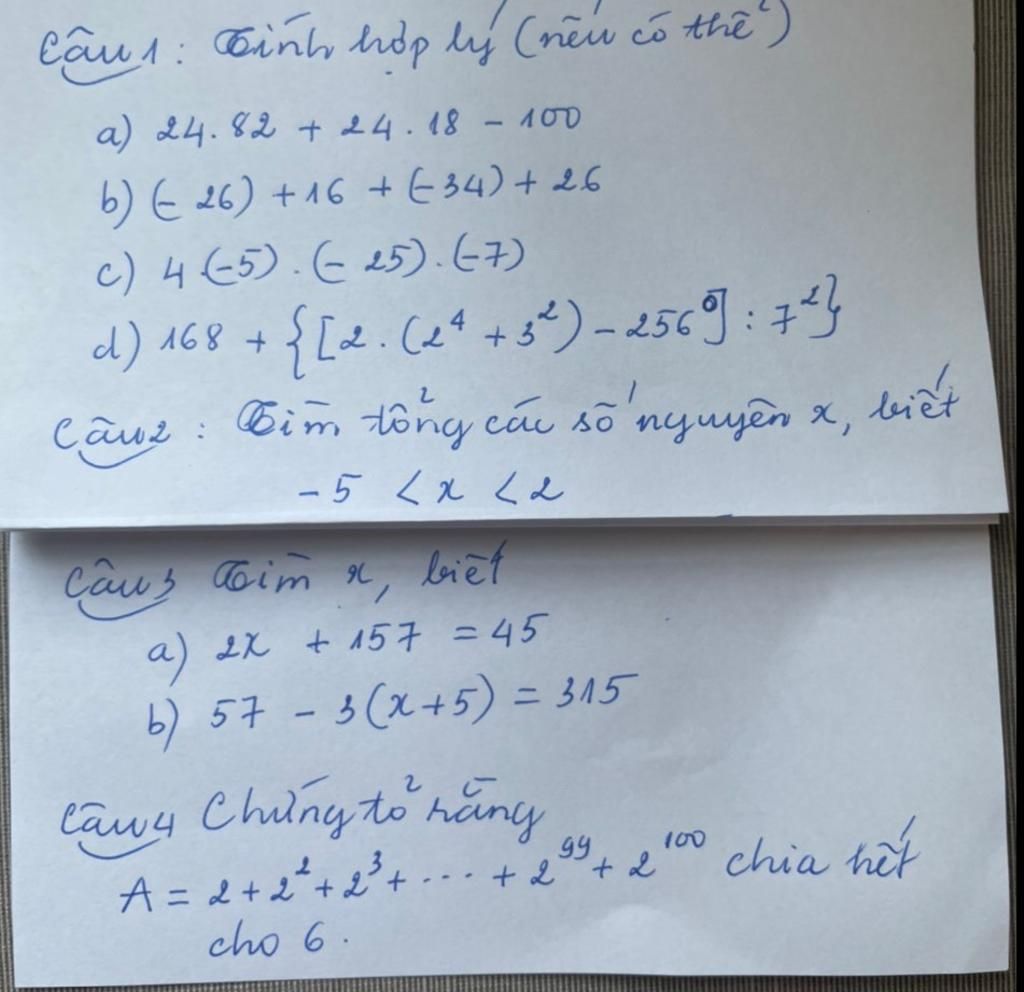 Câu 1: Tính hợp lý (nếu có thể)
a) 24.82 + 24.18 - 100
b) (-26) + 16 + (-34) + 26
c) 4.(-5).(-25).(-7)
d) 168 + {[2.(2⁴ + 3²) - 256⁰] : 7²}
Câu 2: Tìm tổng các số nguyên x, biết
-5 < x < 2
Câu 3 Tìm x, biết
a) 2x + 157 = 45
b) 57 - 3(x+5) = 315
Câu 4 Chứng tỏ rằng
A = 2 + 2² + 2³ + ... + 2⁹⁹ + 2¹⁰⁰ chia hết
cho 6.